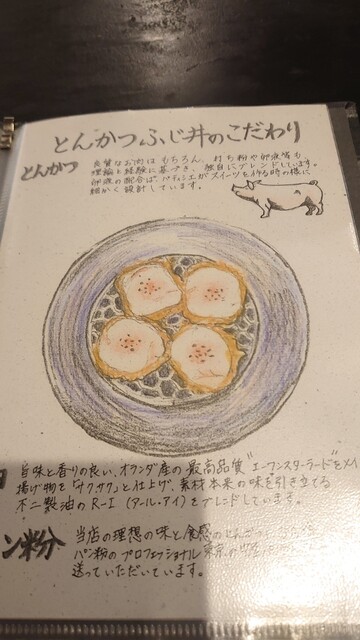 とんかつふじ井のこだわり
とんかつ
良質なお肉はもちろん、打ち粉や卵液等も
理論と経験に基づき、独自にブレンドしています。
卵液の配合はパティシエがスイーツを作る時の様に
細かく設計しています。
旨味と香りの良い、オランダ産の最高品質"エーワンスターラード"をメイ
揚げ物を「サクサク」と仕上げ、素材本来の味を引き立てる
不二製油のR-I(アール・アイ)をブレンドしています。
ン粉
当店の理想の味と食感の
パン粉のプロフェッショナル
送っていただいています。